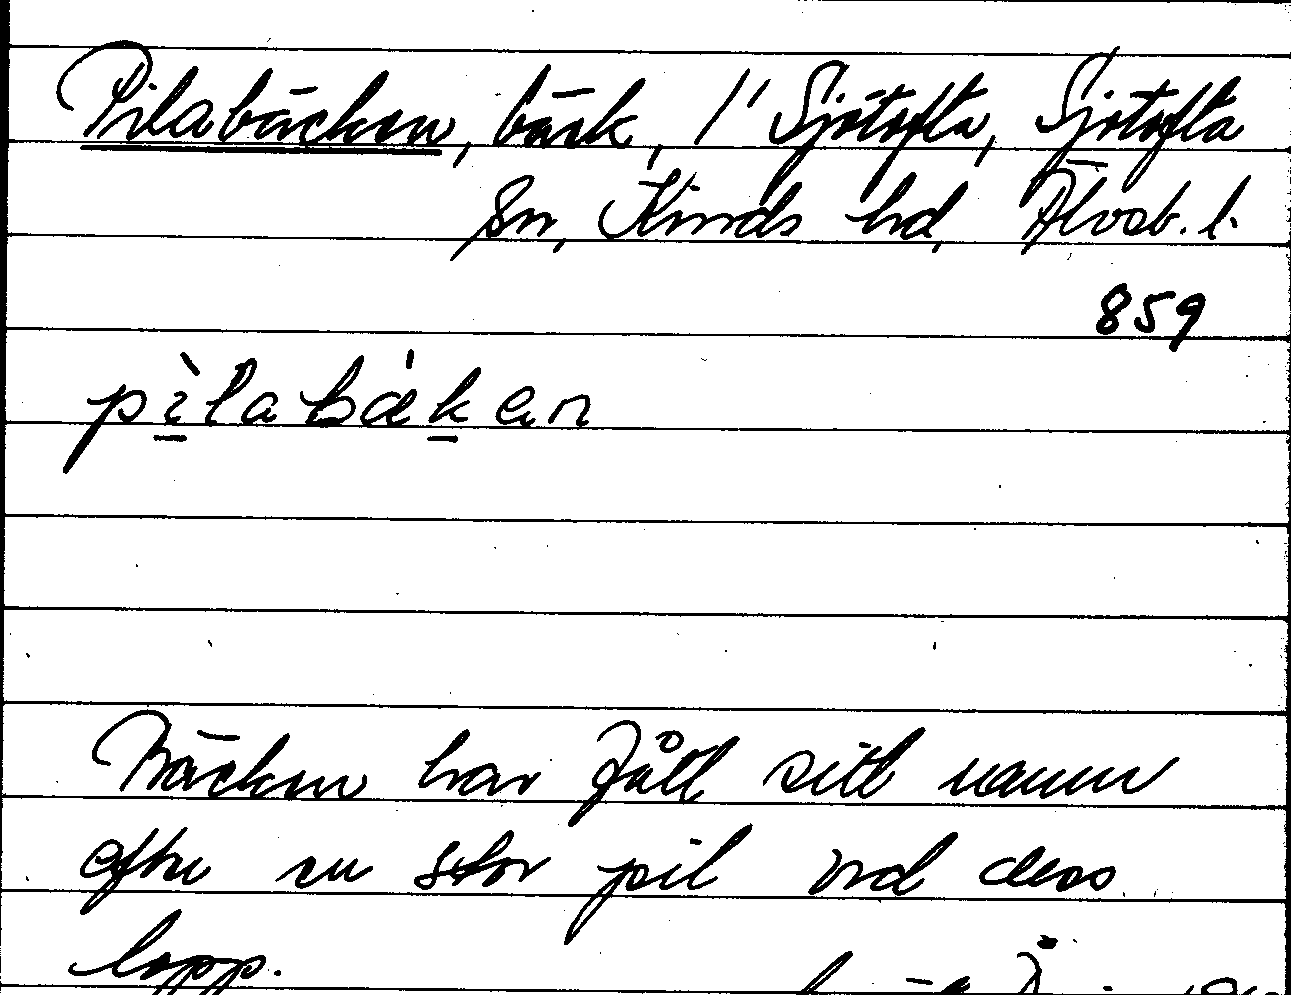 Pilabäcken, bäck, i Sjötofta, Sjötofta
sn, Kinds hd, Älvsb. l.
859
pìlabǽkan
Bäcken har fått sitt namn
efter en stor pil vid dess
lopp.